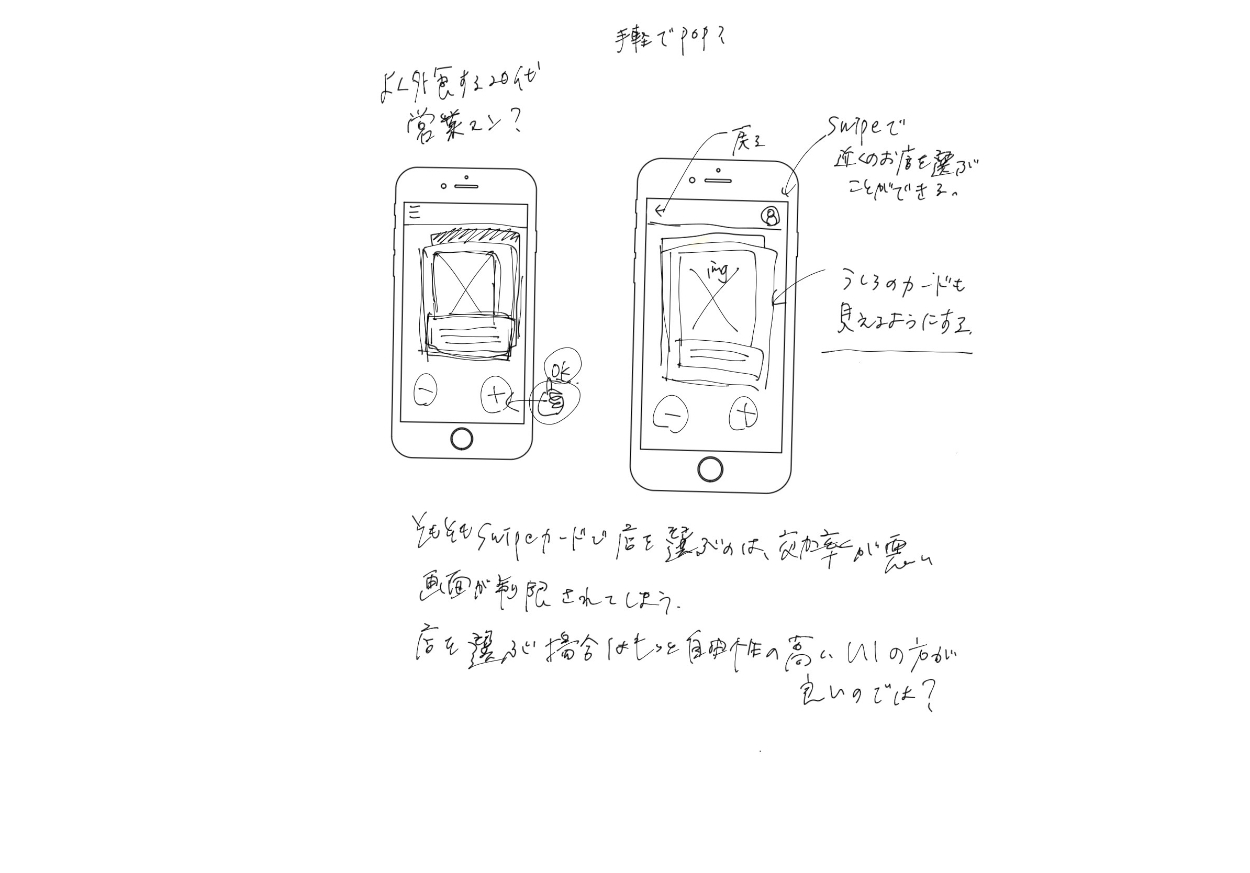 手軽でPOP?
よく外食する20代
営業マン?
戻る
Swipeで
近くのお店を選ぶ
ことができる。
img
うしろのカードも
見えるようにする。
OK
そもそもSwipeカードで店を選ぶのは、効率が悪い
画面が制限されてしまう。
店を選ぶ場合はもっと自由性の高いUIの方が
良いのでは?